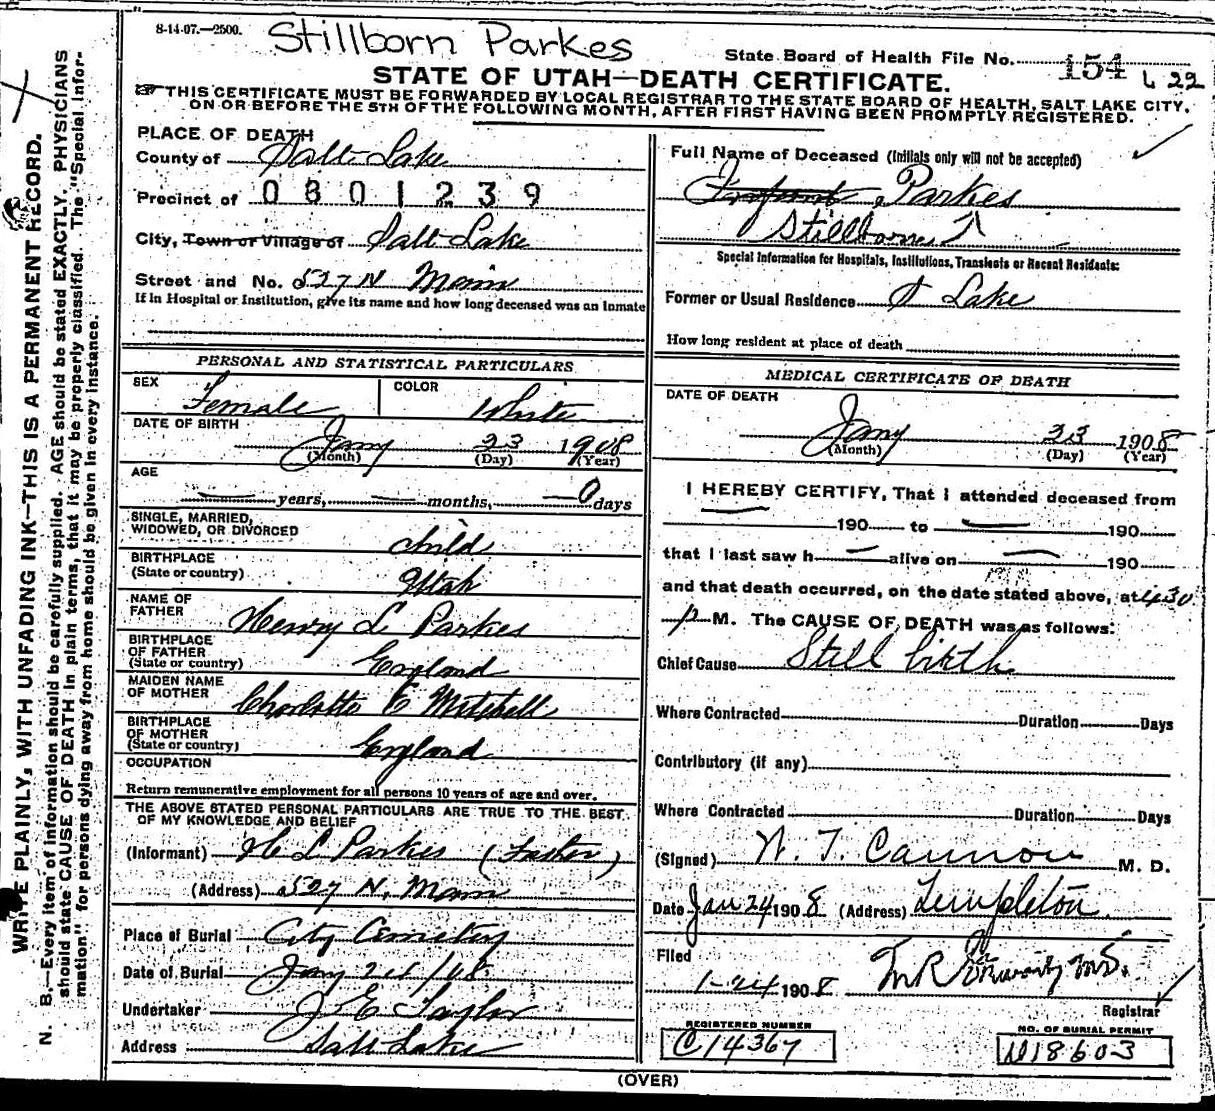 8-14-07.—2500.
Stillborn Parkes
State Board of Health File No. 154
622
STATE OF UTAH—DEATH CERTIFICATE.
THIS CERTIFICATE MUST BE FORWARDED BY LOCAL REGISTRAR TO THE STATE BOARD OF HEALTH, SALT LAKE CITY,
ON OR BEFORE THE 5TH OF THE FOLLOWING MONTH, AFTER FIRST HAVING BEEN PROMPTLY REGISTERED.
WRITE PLAINLY, WITH UNFADING INK—THIS IS A PERMANENT RECORD.
N. B.—Every item of information should be carefully supplied. AGE should be stated EXACTLY. PHYSICIANS
should state CAUSE OF DEATH in plain terms, that it may be properly classified. The "Special Infor-
mation" for persons dying away from home should be given in every instance.
PLACE OF DEATH
County of Salt Lake
Precinct of 0301239
City, Town or Village of Salt Lake
Street and No. 527 N Main
If in Hospital or Institution, give its name and how long deceased was an Inmate
PERSONAL AND STATISTICAL PARTICULARS
SEX Female COLOR White
DATE OF BIRTH
Jany 23 1908
(Month) (Day) (Year)
AGE
years, months, 0 days
SINGLE, MARRIED,
WIDOWED, OR DIVORCED child
BIRTHPLACE
(State or country) Utah
NAME OF
FATHER Henry L Parkes
BIRTHPLACE
OF FATHER
(State or country) England
MAIDEN NAME
OF MOTHER Charlotte E Mitchell
BIRTHPLACE
OF MOTHER
(State or country) England
OCCUPATION
Return remunerative employment for all persons 10 years of age and over.
THE ABOVE STATED PERSONAL PARTICULARS ARE TRUE TO THE BEST
OF MY KNOWLEDGE AND BELIEF
(Informant) H L Parkes (Father)
(Address) 527 N. Main
Place of Burial City Cemetery
Date of Burial Jany 24/08.
Undertaker J E Taylor
Address Salt Lake
Full Name of Deceased (Initials only will not be accepted)
Infant Parkes
Stillborn
Special Information for Hospitals, Institutions, Transients or Recent Residents:
Former or Usual Residence S Lake
How long resident at place of death
MEDICAL CERTIFICATE OF DEATH
DATE OF DEATH
Jany 23 1908
(Month) (Day) (Year)
I HEREBY CERTIFY, That I attended deceased from
190 to 190
that I last saw h alive on 190
and that death occurred, on the date stated above, at 430
p M. The CAUSE OF DEATH was as follows:
Chief Cause Still birth
Where Contracted Duration Days
Contributory (if any)
Where Contracted Duration Days
(Signed) W. T. Cannon M. D.
Date Jan 24 1908 (Address) Templeton
Filed
1-24 1908
Registrar
REGISTERED NUMBER
C14367
NO. OF BURIAL PERMIT
D18603
(OVER)